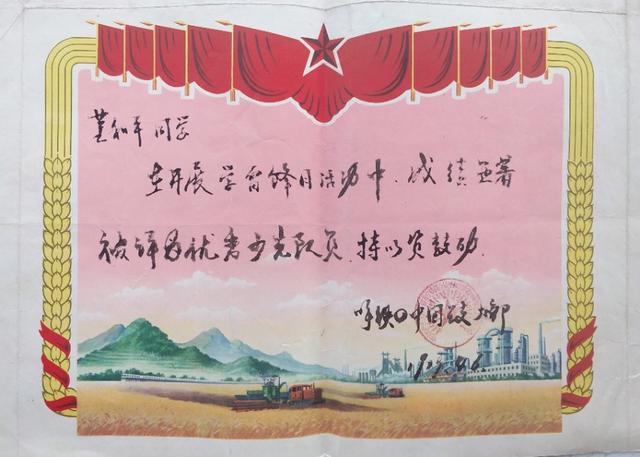 董和平同学
在开展学雷锋月活动中.成绩显著
被评为优秀少先队员.特以资鼓励.
呼铁中国校大部